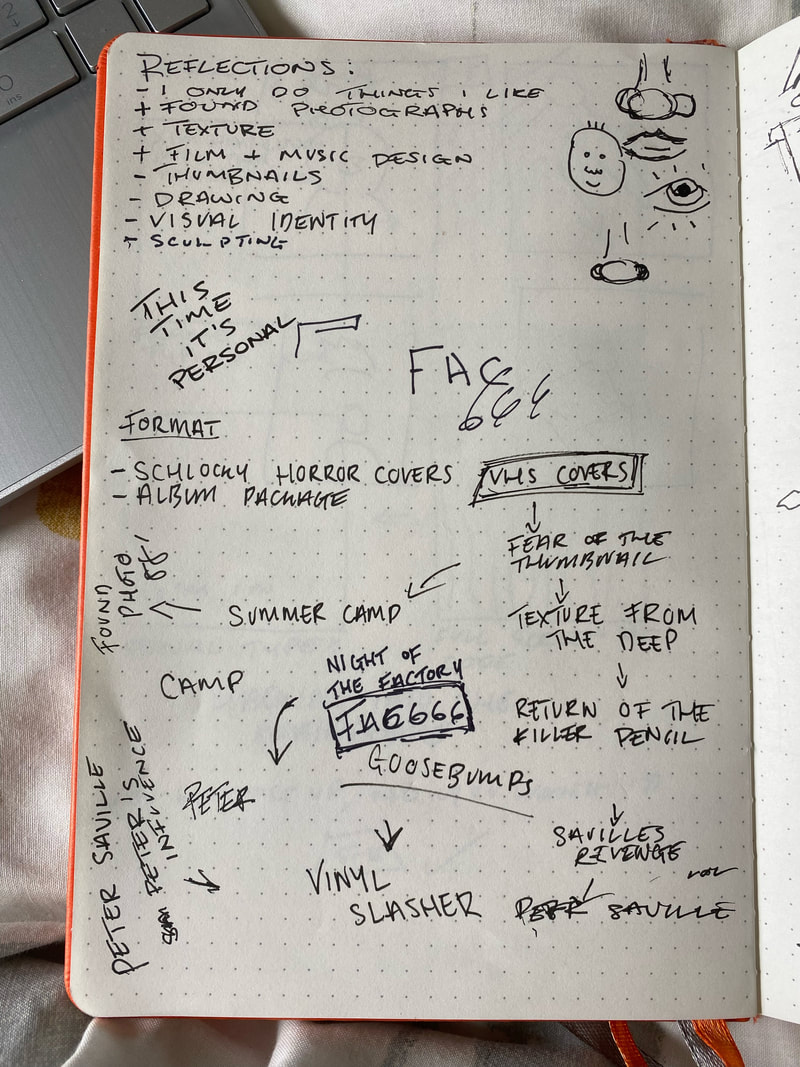 REFLECTIONS:
- I ONLY DO THINGS I LIKE
+ FOUND PHOTOGRAPHS
+ TEXTURE
+ FILM + MUSIC DESIGN
- THUMBNAILS
- DRAWING
- VISUAL IDENTITY
+ SCULPTING
THIS
TIME
IT'S
PERSONAL
FAC
666
FORMAT
- SCHLOCKY HORROR COVERS
- ALBUM PACKAGE
VHS COVERS
FEAR OF THE
THUMBNAIL
TEXTURE FROM
THE DEEP
RETURN OF THE
KILLER PENCIL
SAVILLES
REVENGE
PETER SAVILLE
SUMMER CAMP
FOUND
PHOTO
CAMP
NIGHT OF
THE FACTORY
FAC666
GOOSEBUMPS
VINYL
SLASHER
PETER
PETER SAVILLE
PETER'S
INFLUENCE
ins